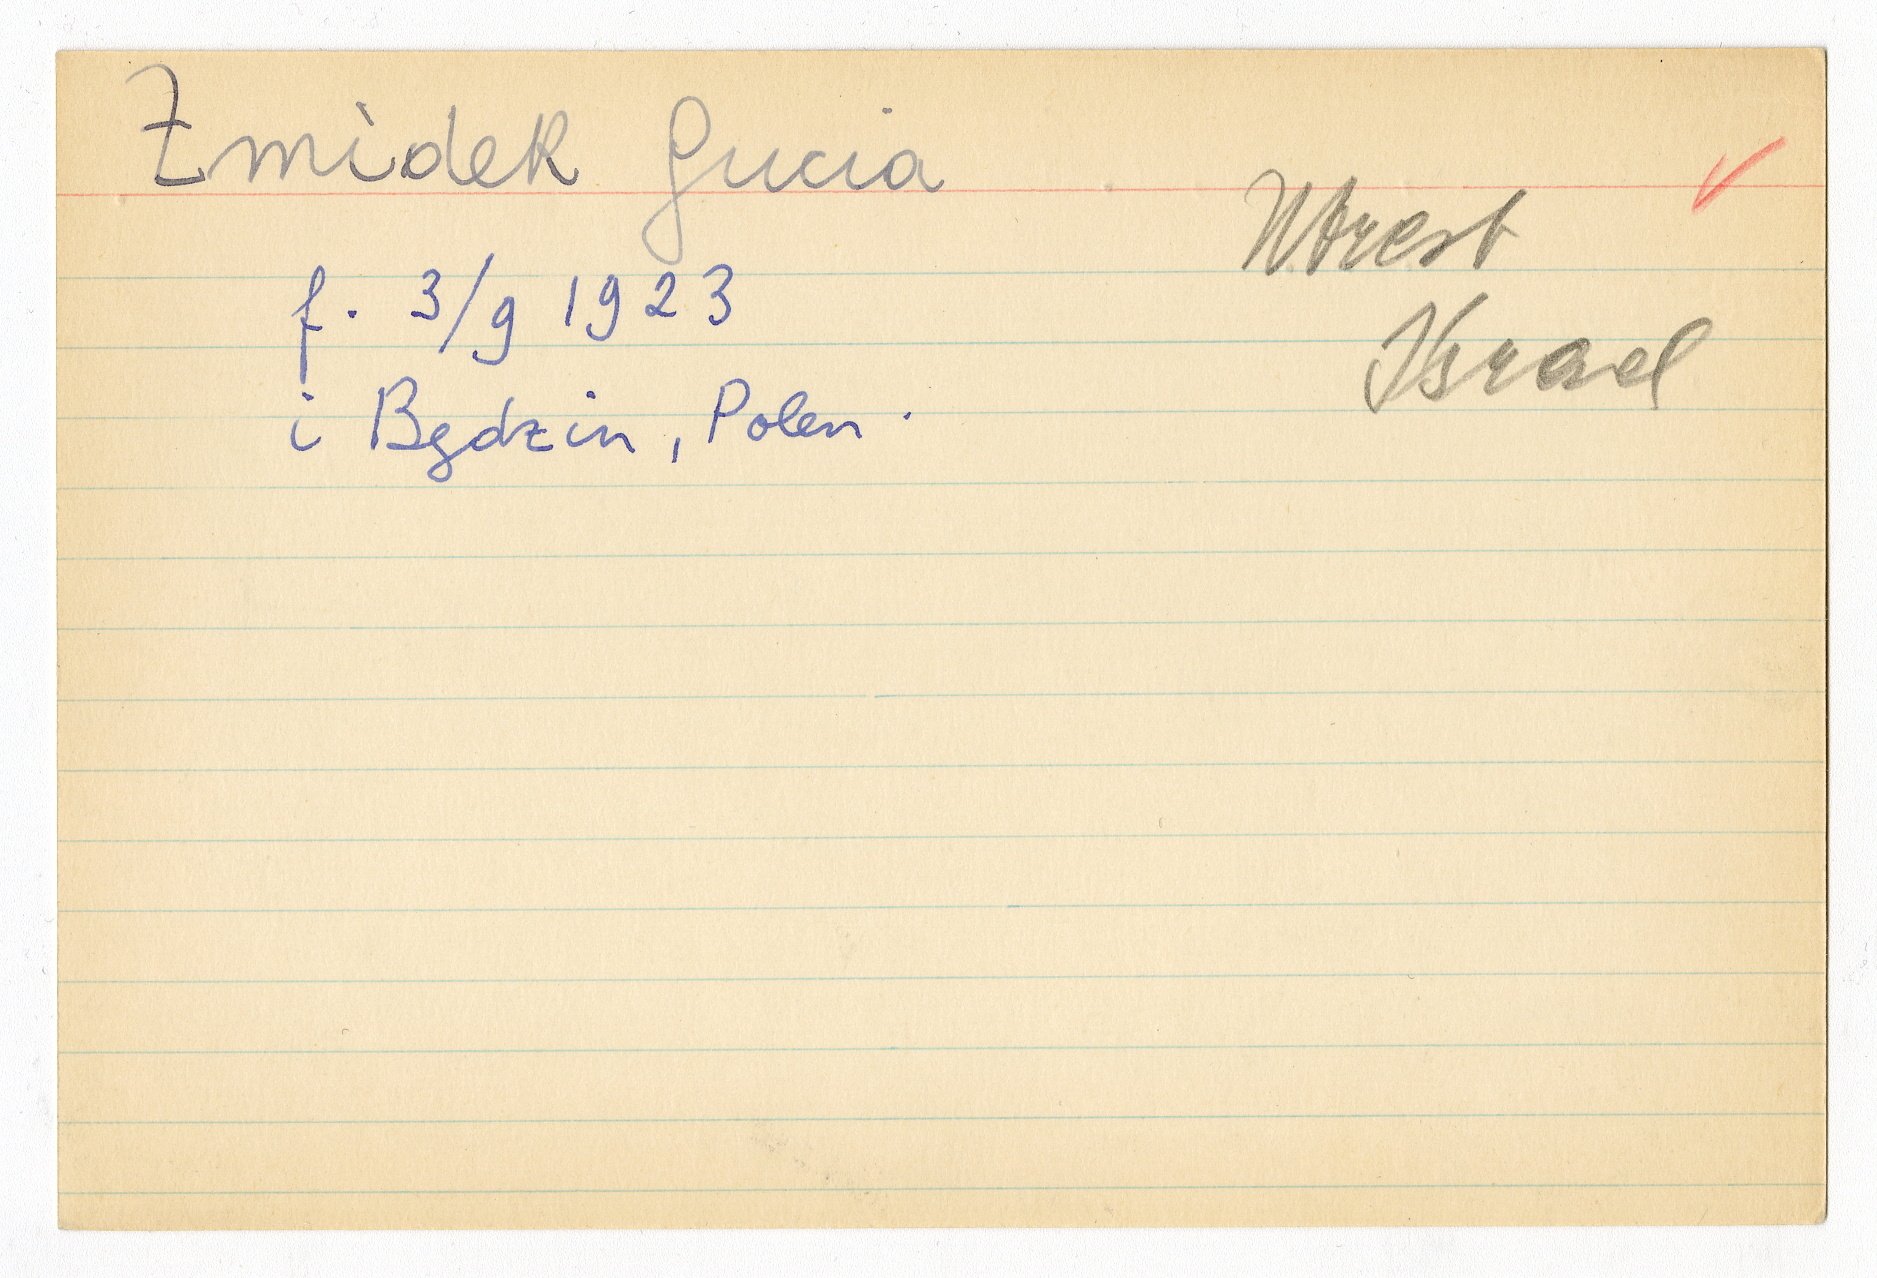 Zmidek Gucia
Utrest
Israel
f. 3/9 1923
i Będzin, Polen.